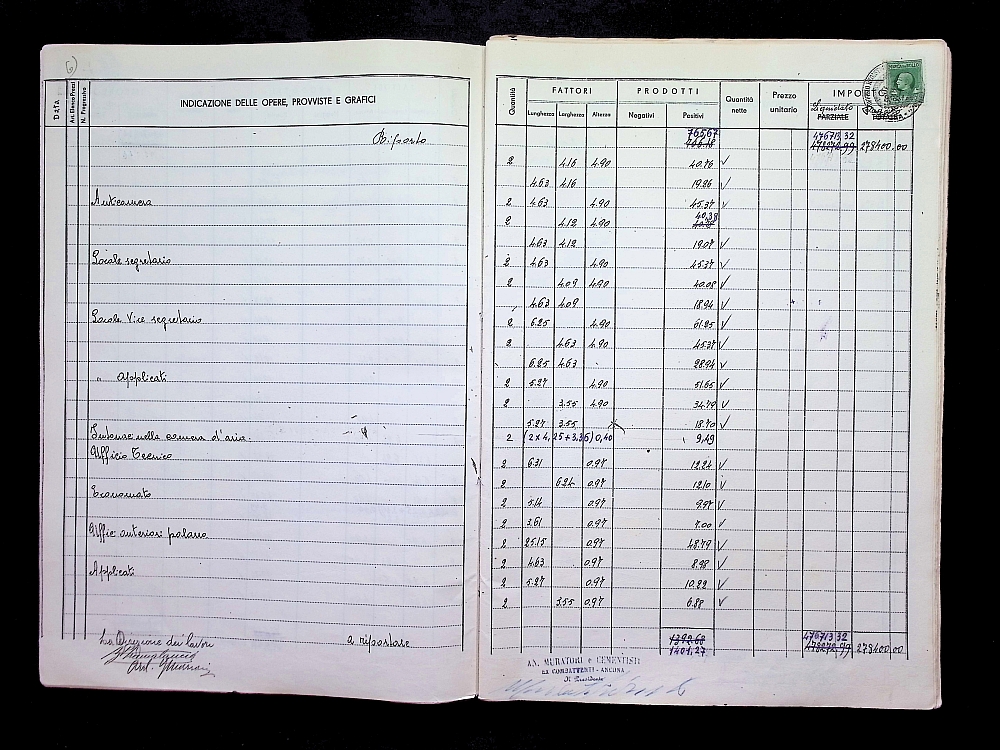 6)
Data
Art. Elenco Prezzi
N. Progressivo
INDICAZIONE DELLE OPERE, PROVVISTE E GRAFICI
Quantità
FATTORI
Lunghezza Larghezza Altezza
PRODOTTI
Negativi Positivi
Quantità nette
Prezzo unitario
IMPO
Liquidato
PARZIALE
Riporto 765,67 476713,32
278400.00
2 4.16 4.90 40.76 ✓
4.63 4.16 19.26 ✓
Anticamera 2 4.63 4.90 45.37 ✓
40.38
2 4.12 4.90
4.63 4.12 19.07 ✓
Locale segretario 2 4.63 4.90 45.37 ✓
2 4.09 4.90 40.08 ✓
4.63 4.09 18.94 ✓
Locale Vice segretario 2 6.25 4.90 61.25 ✓
2 4.63 4.90 45.37 ✓
6.25 4.63 28.94 ✓
" Applicati 2 5.27 4.90 51.65 ✓
2 3.55 4.90 34.79 ✓
5.27 3.55 18.70 ✓
Intonac nella camera d'aria. 2 (2x4,25+3,36) 0,40 9,49
Ufficio Tecnico 2 6.31 0.97 12.24 ✓
2 6.24 0.97 12.10 ✓
Economato 2 5.14 0.97 9.97 ✓
2 3.61 0.97 7.00 ✓
Uffici anteriori palazzo 2 25.15 0.97 48.79 ✓
2 4.63 0.97 8.98 ✓
Applicati 2 5.27 0.97 10.22 ✓
2 3.55 0.97 6.88 ✓
La Direzione dei lavori a riportare 1392.68 476713,32
1401,27 278400.00
AN. MURATORI e CEMENTISTI
EX COMBATTENTI - ANCONA
Il Presidente